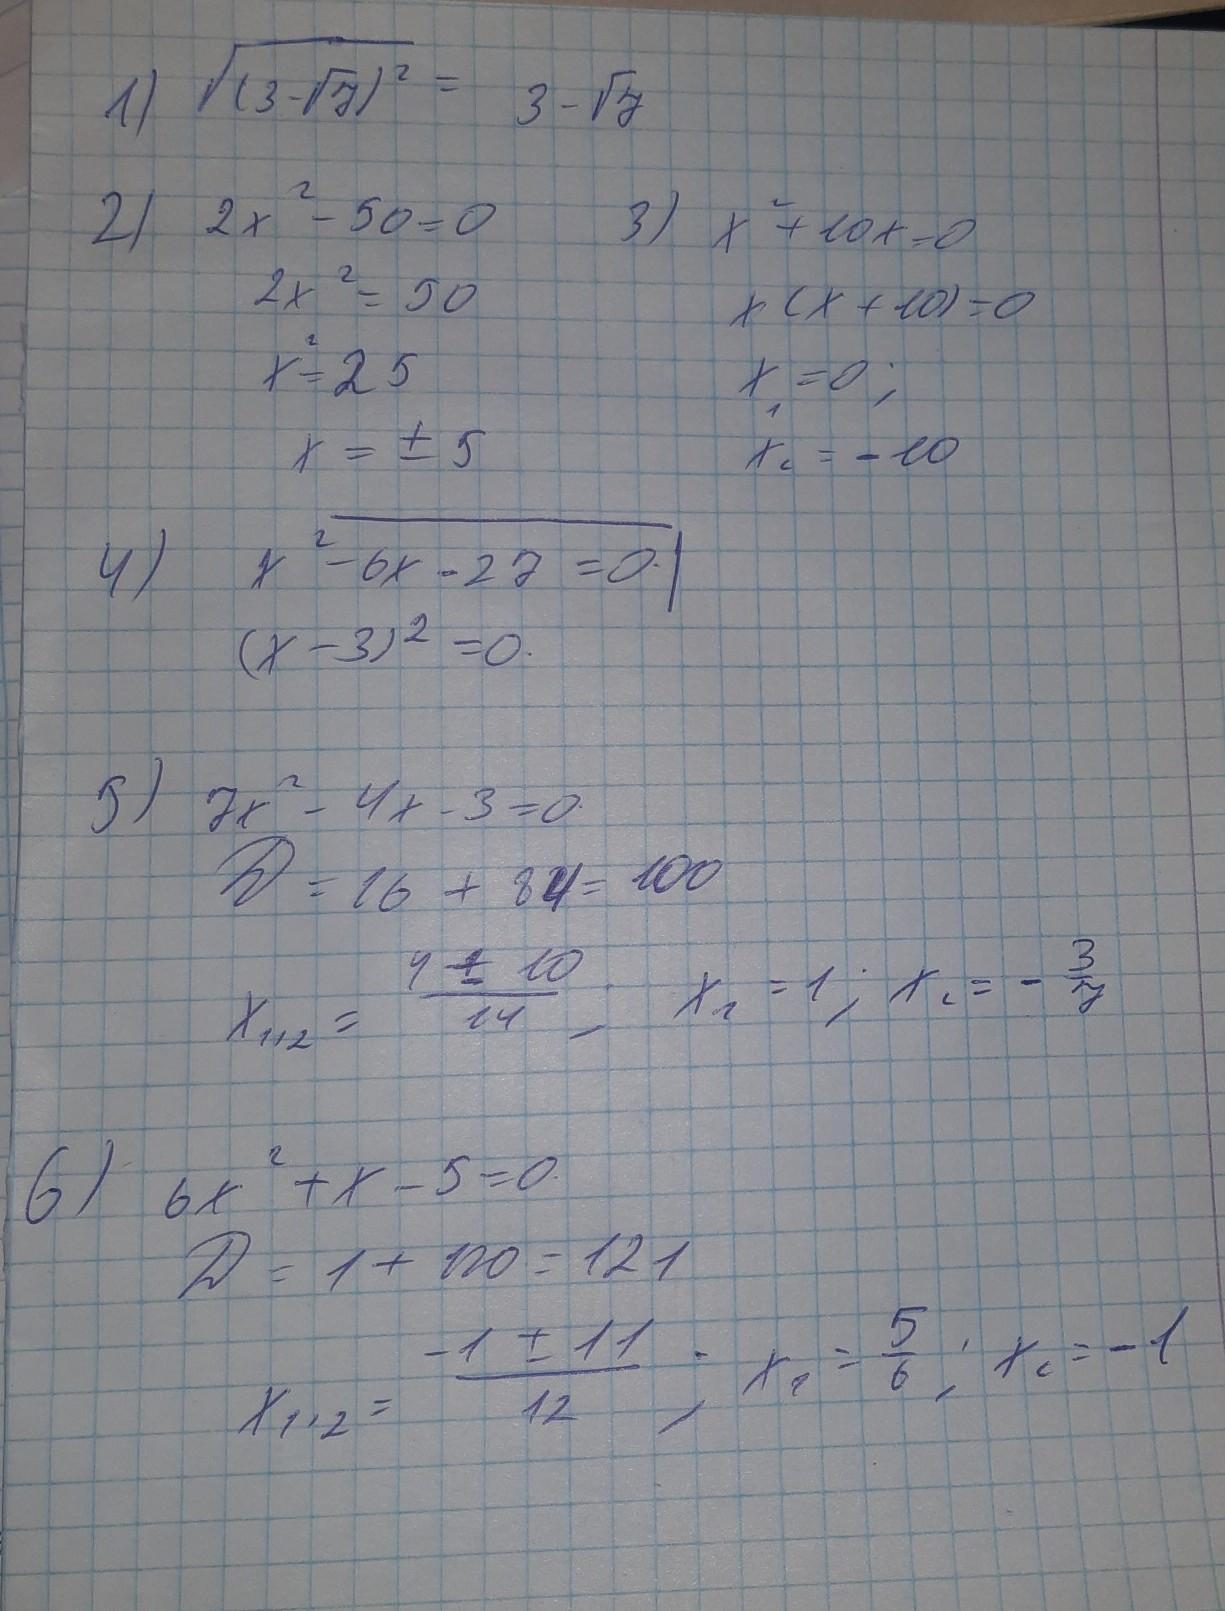 1) √(3-√7)² = 3-√7
2) 2x²-50=0
2x²=50
x²=25
x=±5
3) x²+10x=0
x(x+10)=0
x₁=0;
x₂=-10
4) x²-6x-27=0.
(x-3)²=0.
5) 7x²-4x-3=0.
D=16+84=100
x₁,₂= (4±10)/14; x₁=1; x₂=-3/7
6) 6x²+x-5=0.
D=1+120=121
x₁,₂= (-1±11)/12; x₁=5/6; x₂=-1